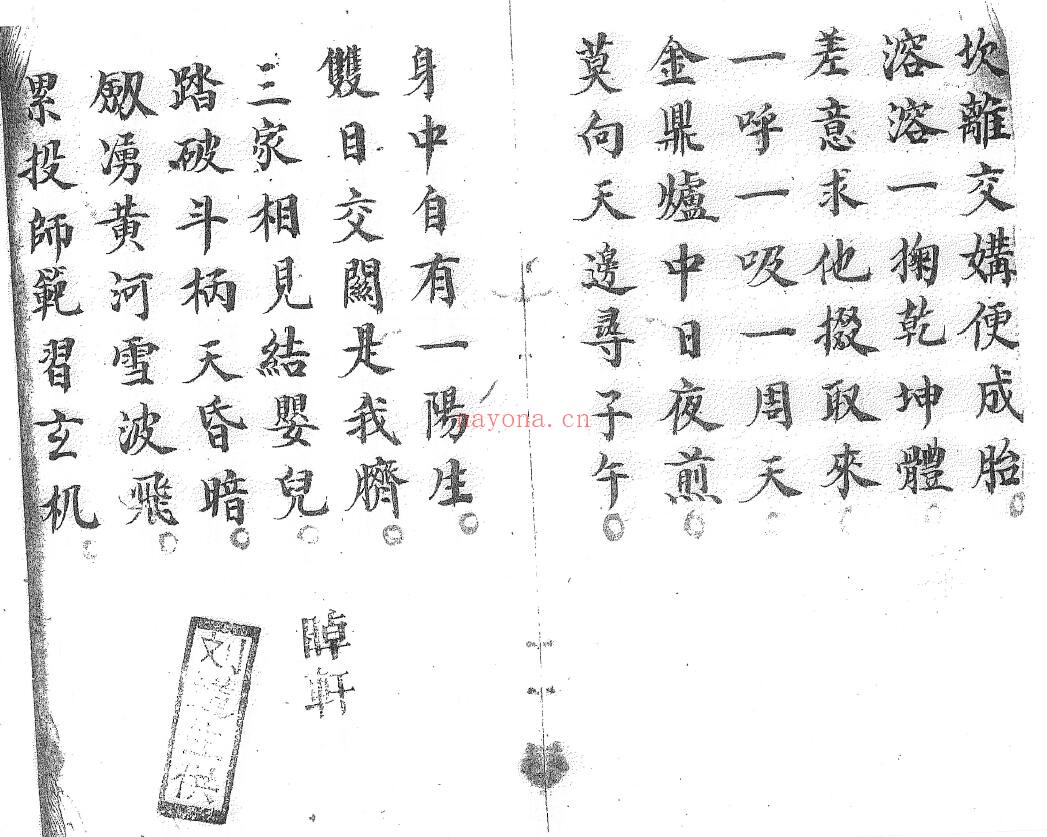 坎離交媾便成胎
溶溶一掬乾坤體
差意求他掇取來
一呼一吸一周天
金鼎爐中日夜煎
莫向天邊尋子午
身中自有一陽生
雙目交關是我臍
三家相見結嬰兒
踏破斗柄天昏暗
劔湧黃河雪波飛
累投師範習玄机
軒
nayona.cn